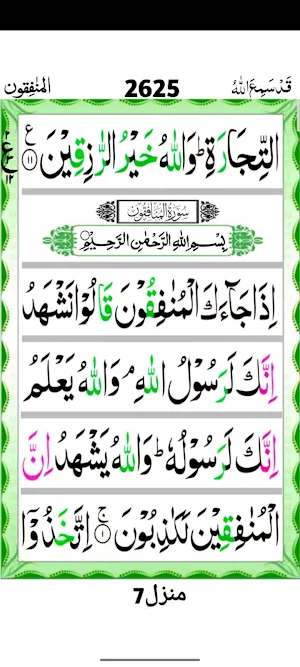 المنٰفقون 2625 قَدْسَمِعَ اللّٰهُ
التِّجَارَةِ ؕ وَاللّٰهُ خَيْرُ الرّٰزِقِيْنَ ۝۱۱ ع
سُوْرَةُ الْمُنَافِقُوْنَ
بِسْمِ اللّٰهِ الرَّحْمٰنِ الرَّحِيْمِ
اِذَا جَآءَكَ الْمُنٰفِقُوْنَ قَالُوْا نَشْهَدُ
اِنَّكَ لَرَسُوْلُ اللّٰهِ ۘ وَاللّٰهُ يَعْلَمُ
اِنَّكَ لَرَسُوْلُهٗ ؕ وَاللّٰهُ يَشْهَدُ اِنَّ
الْمُنٰفِقِيْنَ لَكٰذِبُوْنَ ۝۱ ۚ اِتَّخَذُوْۤا
منزل7